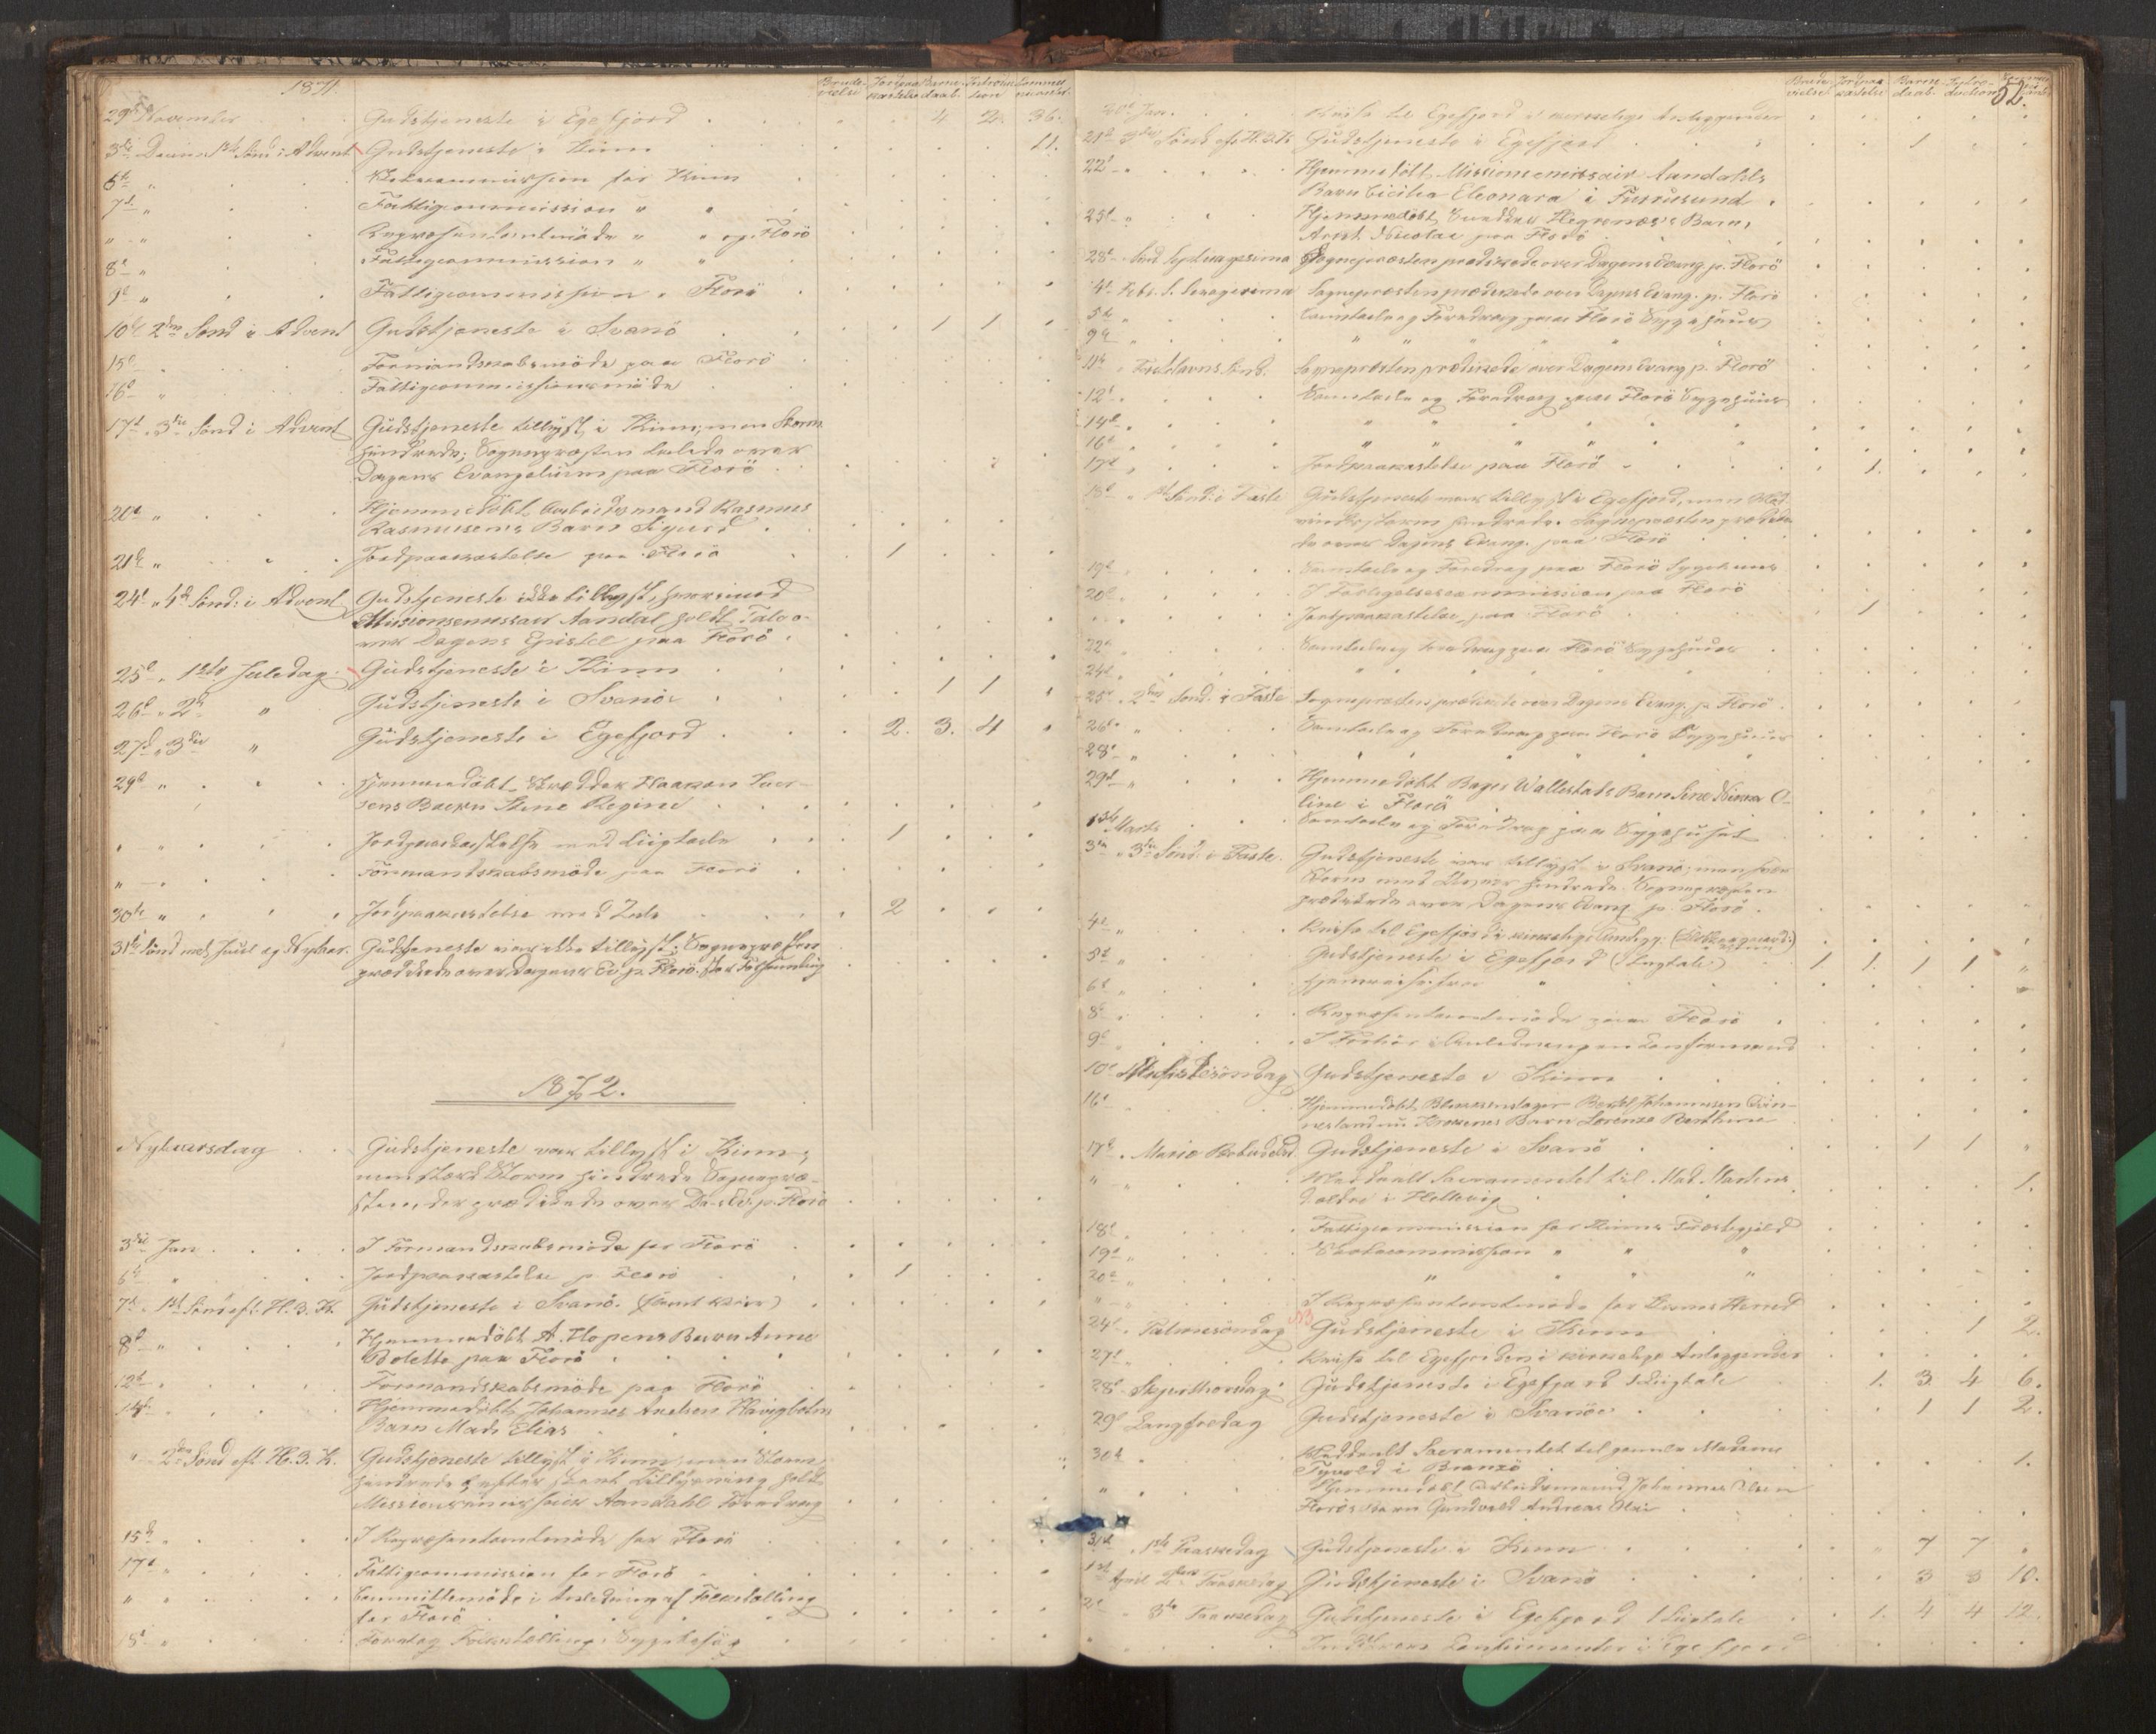 1871.
Brude- Jordpaa- Barne- Introduc- Commu-
vielse kastelse daab. tion nicanter.
29de November Gudstjeneste i Egefjord 4. 2. 36.
3die Decemb. 1ste Sönd i Advent Gudstjeneste i Kinn 11.
5te " Skolecommission for Kinn
7de " Fattigcommission " "
" " Repræsentantmöde " " og Florö
8de " Fattigcommission " "
9de " Fattigcommission " Florö
10de 2den Sönd i Advent Gudstjeneste i Svanö 1 1
15de " Formandskabsmöde paa Florö
16de " Fattigcommissionsmöde
17de " 3die Sönd i Advent Gudstjeneste tillyst i Kinn; men Storm
hindrede; Sognepræsten talede over
Dagens Evangelium paa Florö
20de " Hjemmedöbt Arbeidsmand Rasmus
Rasmusens Barn Sigurd
21de " Jordpaakastelse paa Florö 1
24de " 4de Sönd: i Advent Gudstjeneste ikke tillyst, hvorimod
Missionsemissair Aandal holdt Tale o-
ver Dagens Epistel paa Florö
25de " 1ste Juledag Gudstjeneste i Kinn
26de " 2den " Gudstjeneste i Svanöe 1 1
27de " 3die " Gudstjeneste i Egefjord 2. 3. 4
29de " Hjemmedöbt Skrædder Haakon
Barn Stine Regine
" " Jordpaakastelse med Liigtale 1
" " Formandskabsmöde paa Florö
30te " Jordpaakastelse med Tale 2
31te Sönd mel. Juul og Nytaar. Gudstjeneste var ikke tillyst; Sognepræsten
prædikede over Dagens Ev. p. Florö.
1872.
Nytaarsdag Gudstjeneste var tillyst i Kinn,
men stærk Storm hindrede Sognepræ-
sten, der prædikede over Da. Ev. p. Florö
3die Jan. I Formandskabsmöde for Florö
6te " Jordpaakastelse p. Florö 1
7de " 1ste Sönd eft. H. 3. K. Gudstjeneste i Svanö.
8de " Hjemmedöbt A. Hopens Barn Anne
Bolette paa Florö
12te " Formandskabsmöde paa Florö
14de " Hjemmedöbt Johannes Axelsen
Barn Mads Elias
" 2den Sönd eft. H. 3. K. Gudstjeneste tillyst i Kinn, men Storm
hindrede; efter skeet Tillysning holdt
Missionsemissair Aandahl Foredrag
15de " I Repræsentantmöde for Florö
17de " Fattigcommission for Florö
" " Committemöde i Anledning af Folketælling
for Florö
18de " Foretog Folketælling
52.
Brude- Jordpaa- Barne- Intro-
vielse kastelse daab. duction
20de Jan. Reiste til Egefjord i kirkelige Anliggender
21de " 3die Sönd eft. H. 3. K. Gudstjeneste i Egefjord 1
22de " Hjemmedöbt Missionsemissair Aandahls
Barn Cicilia Eleonara i Furrusund
25de " Hjemmedöbt Skrædder Hegrenæs's Barn,
Nicolai paa Florö
28de " Sönd Septuagesima Sognepræsten prædikede over Dagens Evang. p. Florö
4de Febr. S. Sexagesima Sognepræsten prædikede over Dagens Evang. p. Florö
5te " Samtale og Foredrag paa Florö Sygehuus
9de " " " " " "
11te " Fastelavns Sönd. Sognepræsten prædikede over Dagens Evang p. Florö
12te " Samtale og Foredrag paa Florö Sygehuus
14de " " " " " " "
16de " " " " " " "
17de " Jordpaakastelse paa Florö 1.
18de " 1ste Sönd: i Faste Gudstjeneste var tillyst i Egefjord, men
storm hindrede. Sognepræsten prædike-
de over Dagens Evang. paa Florö
19de " Samtale og Foredrag paa Florö Sygehuus
20de " I Forligelsescommission paa Florö
" " Jordpaakastelse paa Florö 1
22de " Samtale og Foredrag paa Florö Sygehuus
24de " " " " " "
25de " 2den Sönd. i Faste Sognepræsten prædikede over Dagens Evang. p. Florö
26de " Samtale og Foredrag paa Florö Sygehuus
28de " " " " " "
29de " Hjemmedöbt Bager Wallestads Barn Sine Nikka O-
line i Florö
1ste Marts Samtale og Foredrag paa Sygehuset
3die " 3die Sönd. i Faste. Gudstjeneste var tillyst i Svanö; men svær
Storm med hindrede. Sognepræsten
prædikede over Dagens Evang. p. Florö.
4de " Reiste til Egefjord i kirkelige Anligg.
5te " Gudstjeneste i Egefjord (1 Liigtale) 1. 1. 1 1 "
6te " Hjemreiste fra "
8de " Repræsentantmöde paa Florö
9de " I Florö i Anledning en Confirmand
10de Midfastesöndag Gudstjeneste i Kinn
16de Hjemmedöbt Blikkenslager Johannesen
Barn Lorense Berthine
17de " Mariæ Bebudelsesd. Gudstjeneste i Svanö 1 1 "
" " Meddeelt Sacramentet til Mad. Martens
i Hellevig 1.
18de " Fattigcommission for Kinns Præstegjeld
19de " Skolecommission " " "
20de " " " "
" " I Repræsentantmöde for Kinns Herred
NB
24de " Palmesöndag Gudstjeneste i Kinn 1 2.
27de " Reiste til Egefjorden i kirkelige Anliggender
28de Skjærthorsdag Gudstjeneste i Egefjord 1 Liigtale 1. 3. 4 6.
29de Langfredag Gudstjeneste i Svanöe 1 1 2.
30te Meddeelt Sacramentet til gamle Madame
i Brandsö 1.
" Hjemmedöbt Arbeidsmand Johannes Olsen
Florös Barn Gundvald Andreas
31te " 1ste Paaskedag Gudstjeneste i Kinn " 7 7 "
1ste April 2den Paaskedag Gudstjeneste i Svanö 3 3 10.
2den " 3die Paaskedag Gudstjeneste i Egefjord 1 Liigtale 1. 4 4 12.
Indskrev Confirmanter i Egefjord